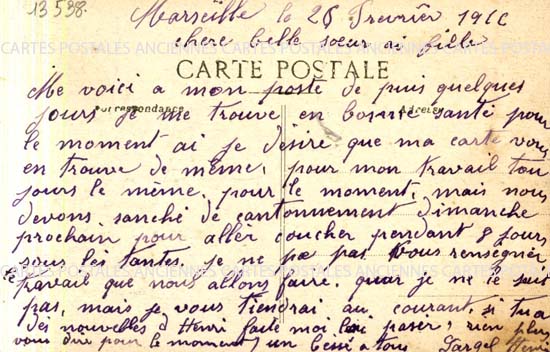 13538.
Marseille le 26 Fevrier 191
chere belle sœur ai fille
CARTE POSTALE
Me voici a mon poste de puis quelques
Correspondance
Adresse
jours je me trouve en bonne santé pour
le moment ai je désire que ma carte vous
en trouve de même, pour mon travail tou
jours le même, pour le moment, mais nous
devons sanché de cantonnement dimanche
prochain pour aller coucher pendant 8 jours
sous les tantes, je ne pæ pas Vous renseigner
CARTES POSTALES ANCIENNES CARTES POSTALES ANCIENNES
le travail que nous allons faire, quar je ne le suit
pas, mais je vous tiendrai au courant, si tu a
des nouvelles d Henri faite moi lai paser, rien plus
vous dire pour le moment, un bessé a tou Dargel Henri